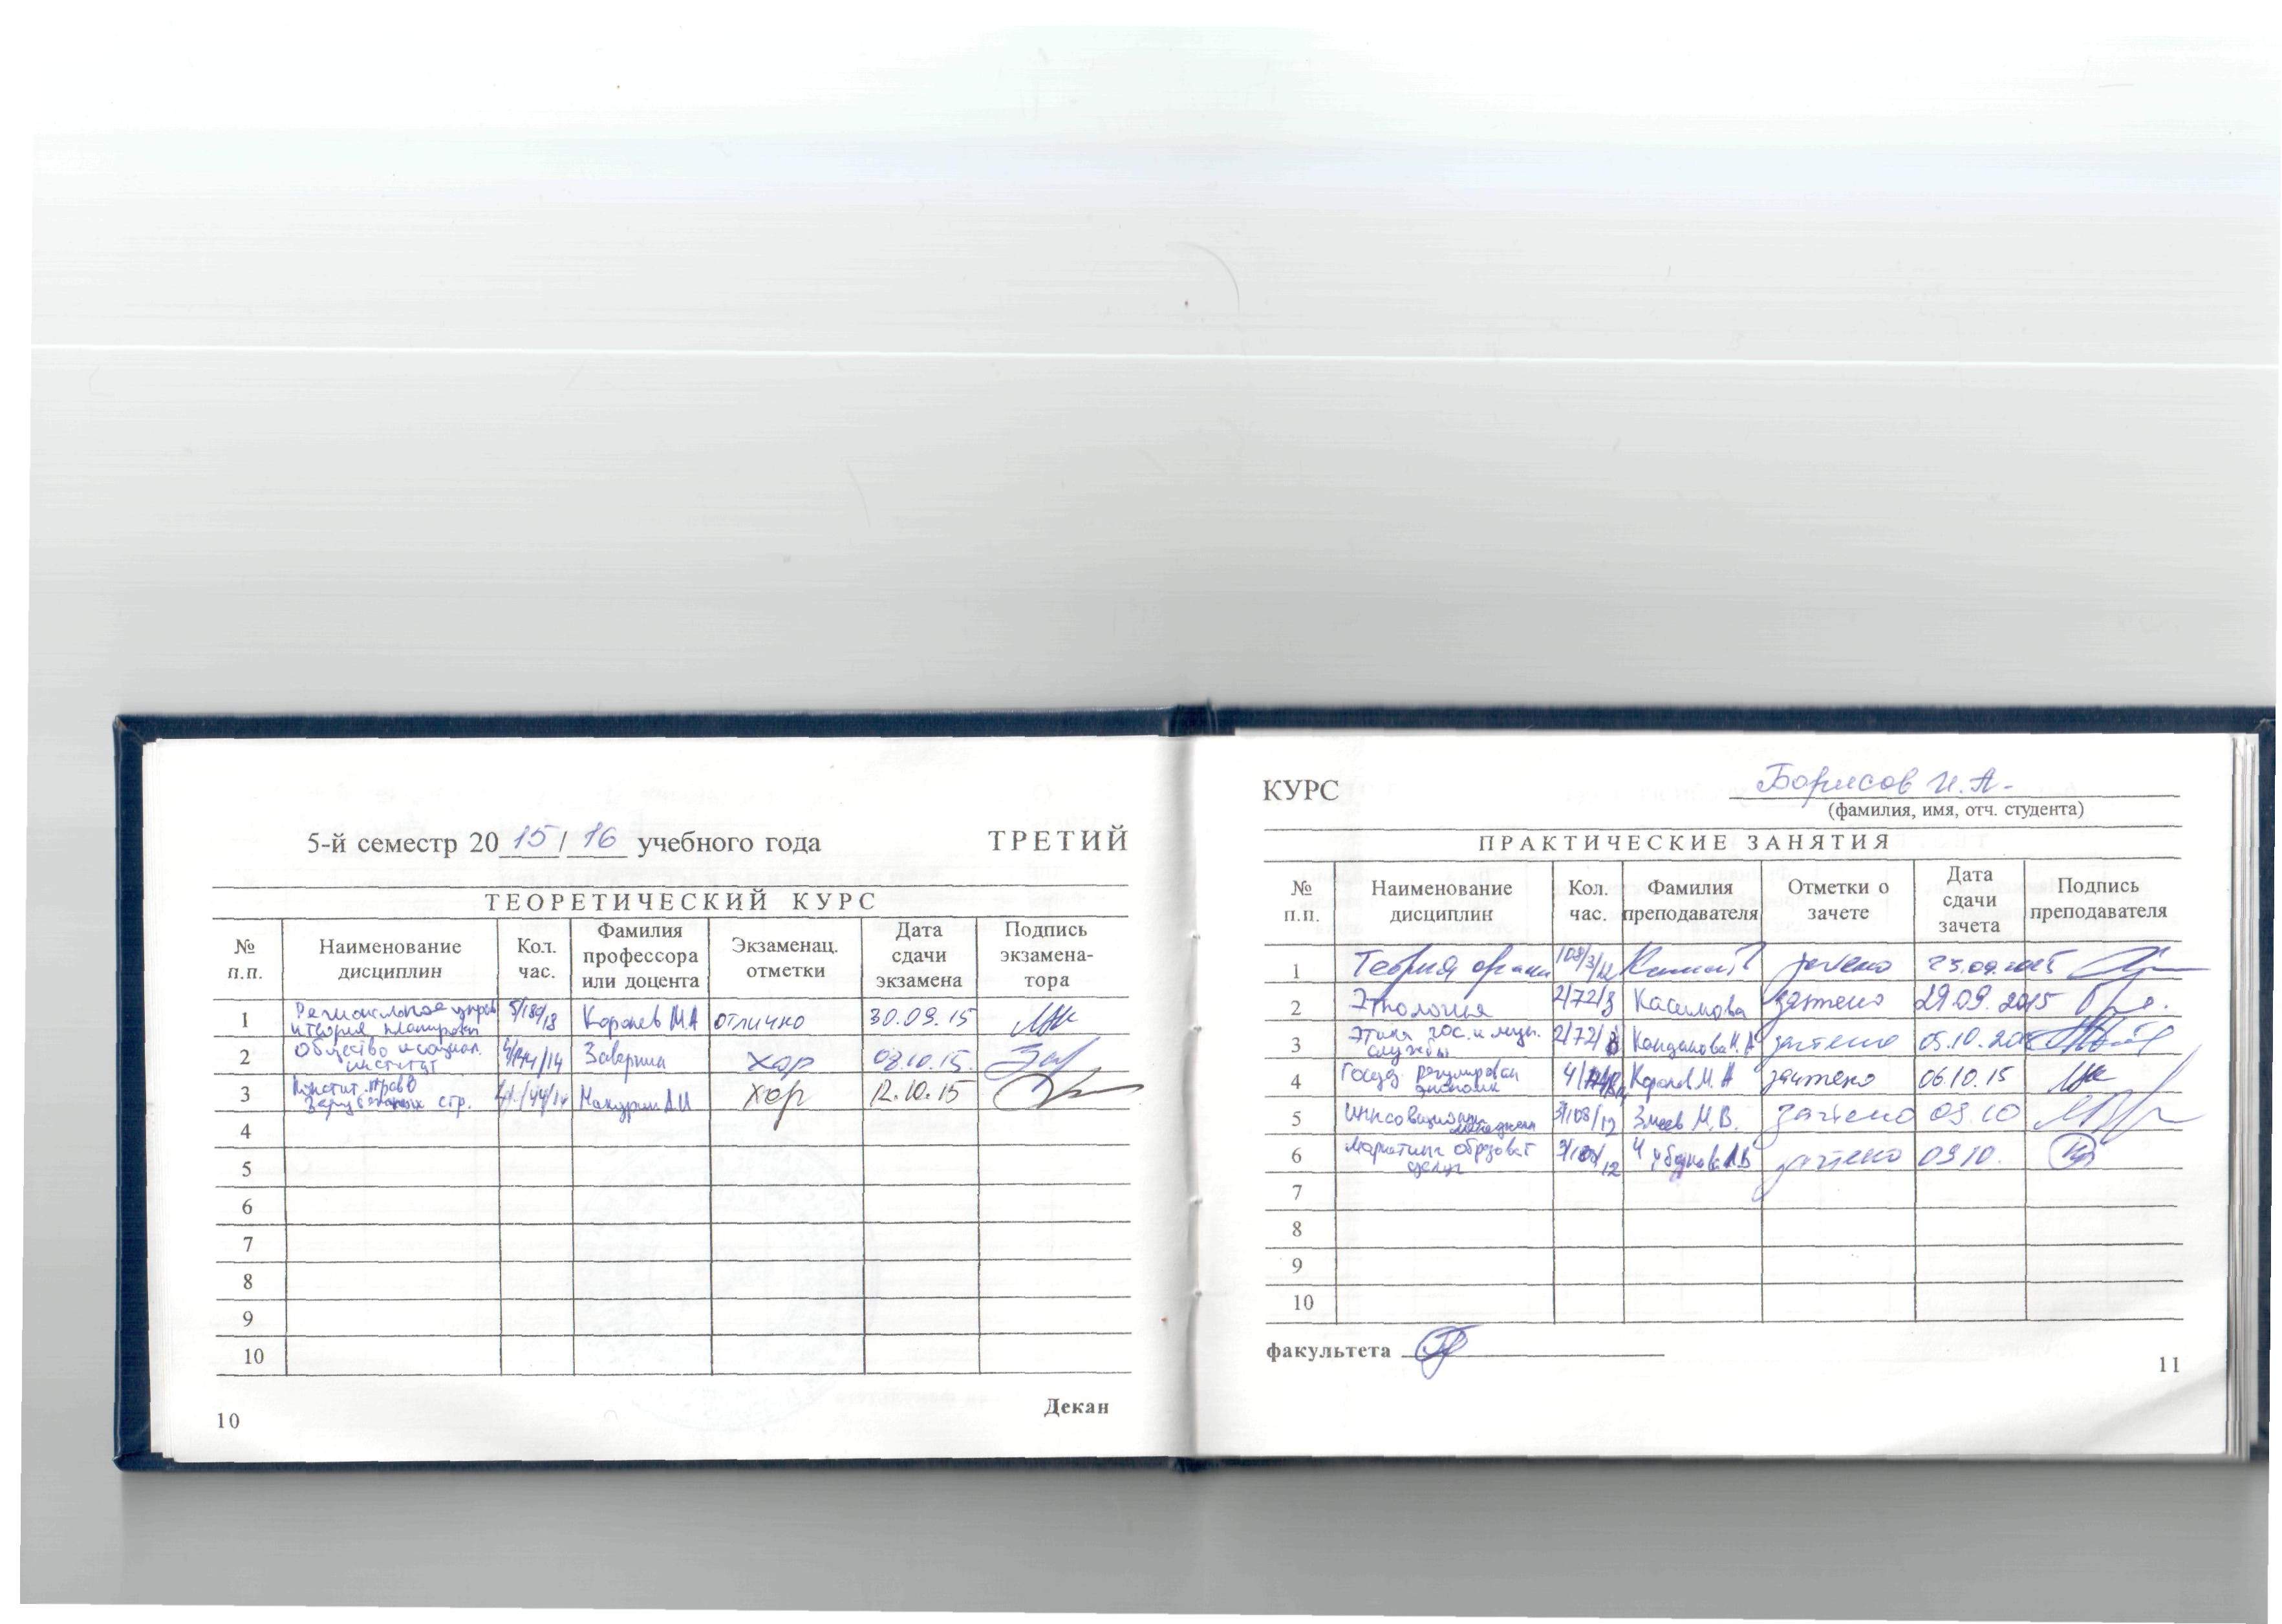 5-й семестр 20 15 / 16 учебного года ТРЕТИЙ
ТЕОРЕТИЧЕСКИЙ КУРС
№ п.п. Наименование дисциплин Кол. час. Фамилия профессора или доцента Экзаменац. отметки Дата сдачи экзамена Подпись экзамена-тора
1 Региональное управ и терия планиров 5/180/18 Королев М.А отлично 30.09.15
2 Общество и социал. институт /14 Заверина хор 08.10.15.
3 Констит. право зарубежных стр. Макурин А.И хор 12.10.15
4
5
6
7
8
9
10
Декан
10
КУРС Борисов И.А.
(фамилия, имя, отч. студента)
ПРАКТИЧЕСКИЕ ЗАНЯТИЯ
№ п.п. Наименование дисциплин Кол. час. Фамилия преподавателя Отметки о зачете Дата сдачи зачета Подпись преподавателя
1 Теория органи 108/3/12 зачтено
2 Этнология 2/72/8 Касимова зачтено 29.09.2015
3 Этика гос. и мун. службы 2/72/8 зачтено 05.10.
4 Госуд регулирован эконом 4/ Королев М.А зачтено 06.10.15
5 Инновацион менеджмен 3/108/12 Змеев М.В. зачтено 09.10
6 маркетинг образоват услуг 3/108/12 зачтено 09 10.
7
8
9
10
факультета
11